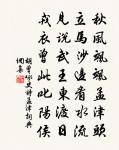 秋風颯颯孟津頭
立馬沙邊看水流
見説武王東渡日
戎衣曾此叱陽侯
胡曾詠史詩孟津詞典
網集